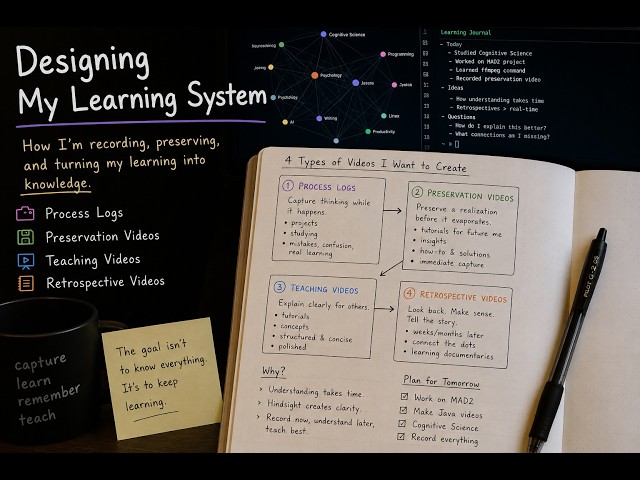 Designing
My Learning System
How I'm recording, preserving,
and turning my learning into
knowledge.
Process Logs
Preservation Videos
Teaching Videos
Retrospective Videos
capture
learn
remember
teach
The goal isn't
to know everything.
It's to keep
learning.
Cognitive Science
Neuroscience
Programming
Psychology
Java
Linux
Writing
AI
Productivity
Learning Journal
- Today
- Studied Cognitive Science
- Worked on MAD2 project
- Learned ffmpeg command
- Recorded preservation video
- Ideas
- How understanding takes time
- Retrospectives > real-time
- Questions
- How do I explain this better?
- What connections am I missing?
4 Types of Videos I Want to Create
1 Process Logs
Capture thinking while
it happens.
• projects
• studying
• mistakes, confusion,
real learning
2 Preservation Videos
Preserve a realization
before it evaporates.
• tutorials for future me
• insights
• how-to & solutions
• immediate capture
3 Teaching Videos
Explain clearly for others.
• tutorials
• concepts
• structured & concise
• polished
4 Retrospective Videos
Look back. Make sense.
Tell the story.
• weeks/months later
• connect the dots
• learning documentaries
Why?
> Understanding takes time.
> Hindsight creates clarity.
> Record now, understand later,
teach best.
Plan for Tomorrow
☑ Work on MAD2
☑ Make Java videos
☑ Cognitive Science
☑ Record everything
PILOT G-2